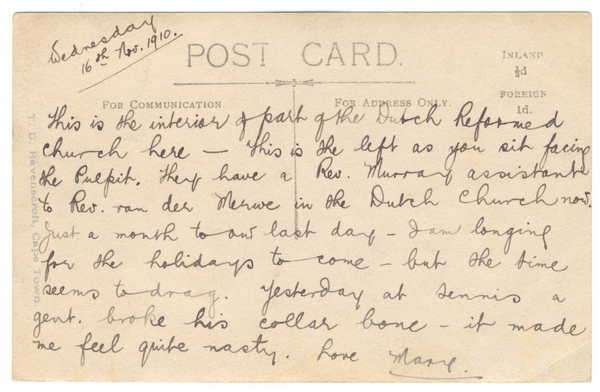 Wednesday
16th Nov. 1910.
POST CARD.
INLAND
½d
FOREIGN
1d.
FOR COMMUNICATION.
FOR ADDRESS ONLY.
This is the interior of part of the Dutch Reformed
Church here — This is the left as you sit facing
the Pulpit. They have a Rev. Murray assistant
to Rev. van der Merwe in the Dutch Church now.
Just a month to our last day — I am longing
for the holidays to come — but the time
seems to drag. Yesterday at tennis a
gent. broke his collar bone — it made
me feel quite nasty. Love Mary.
T. D. Ravenscroft, Cape Town.